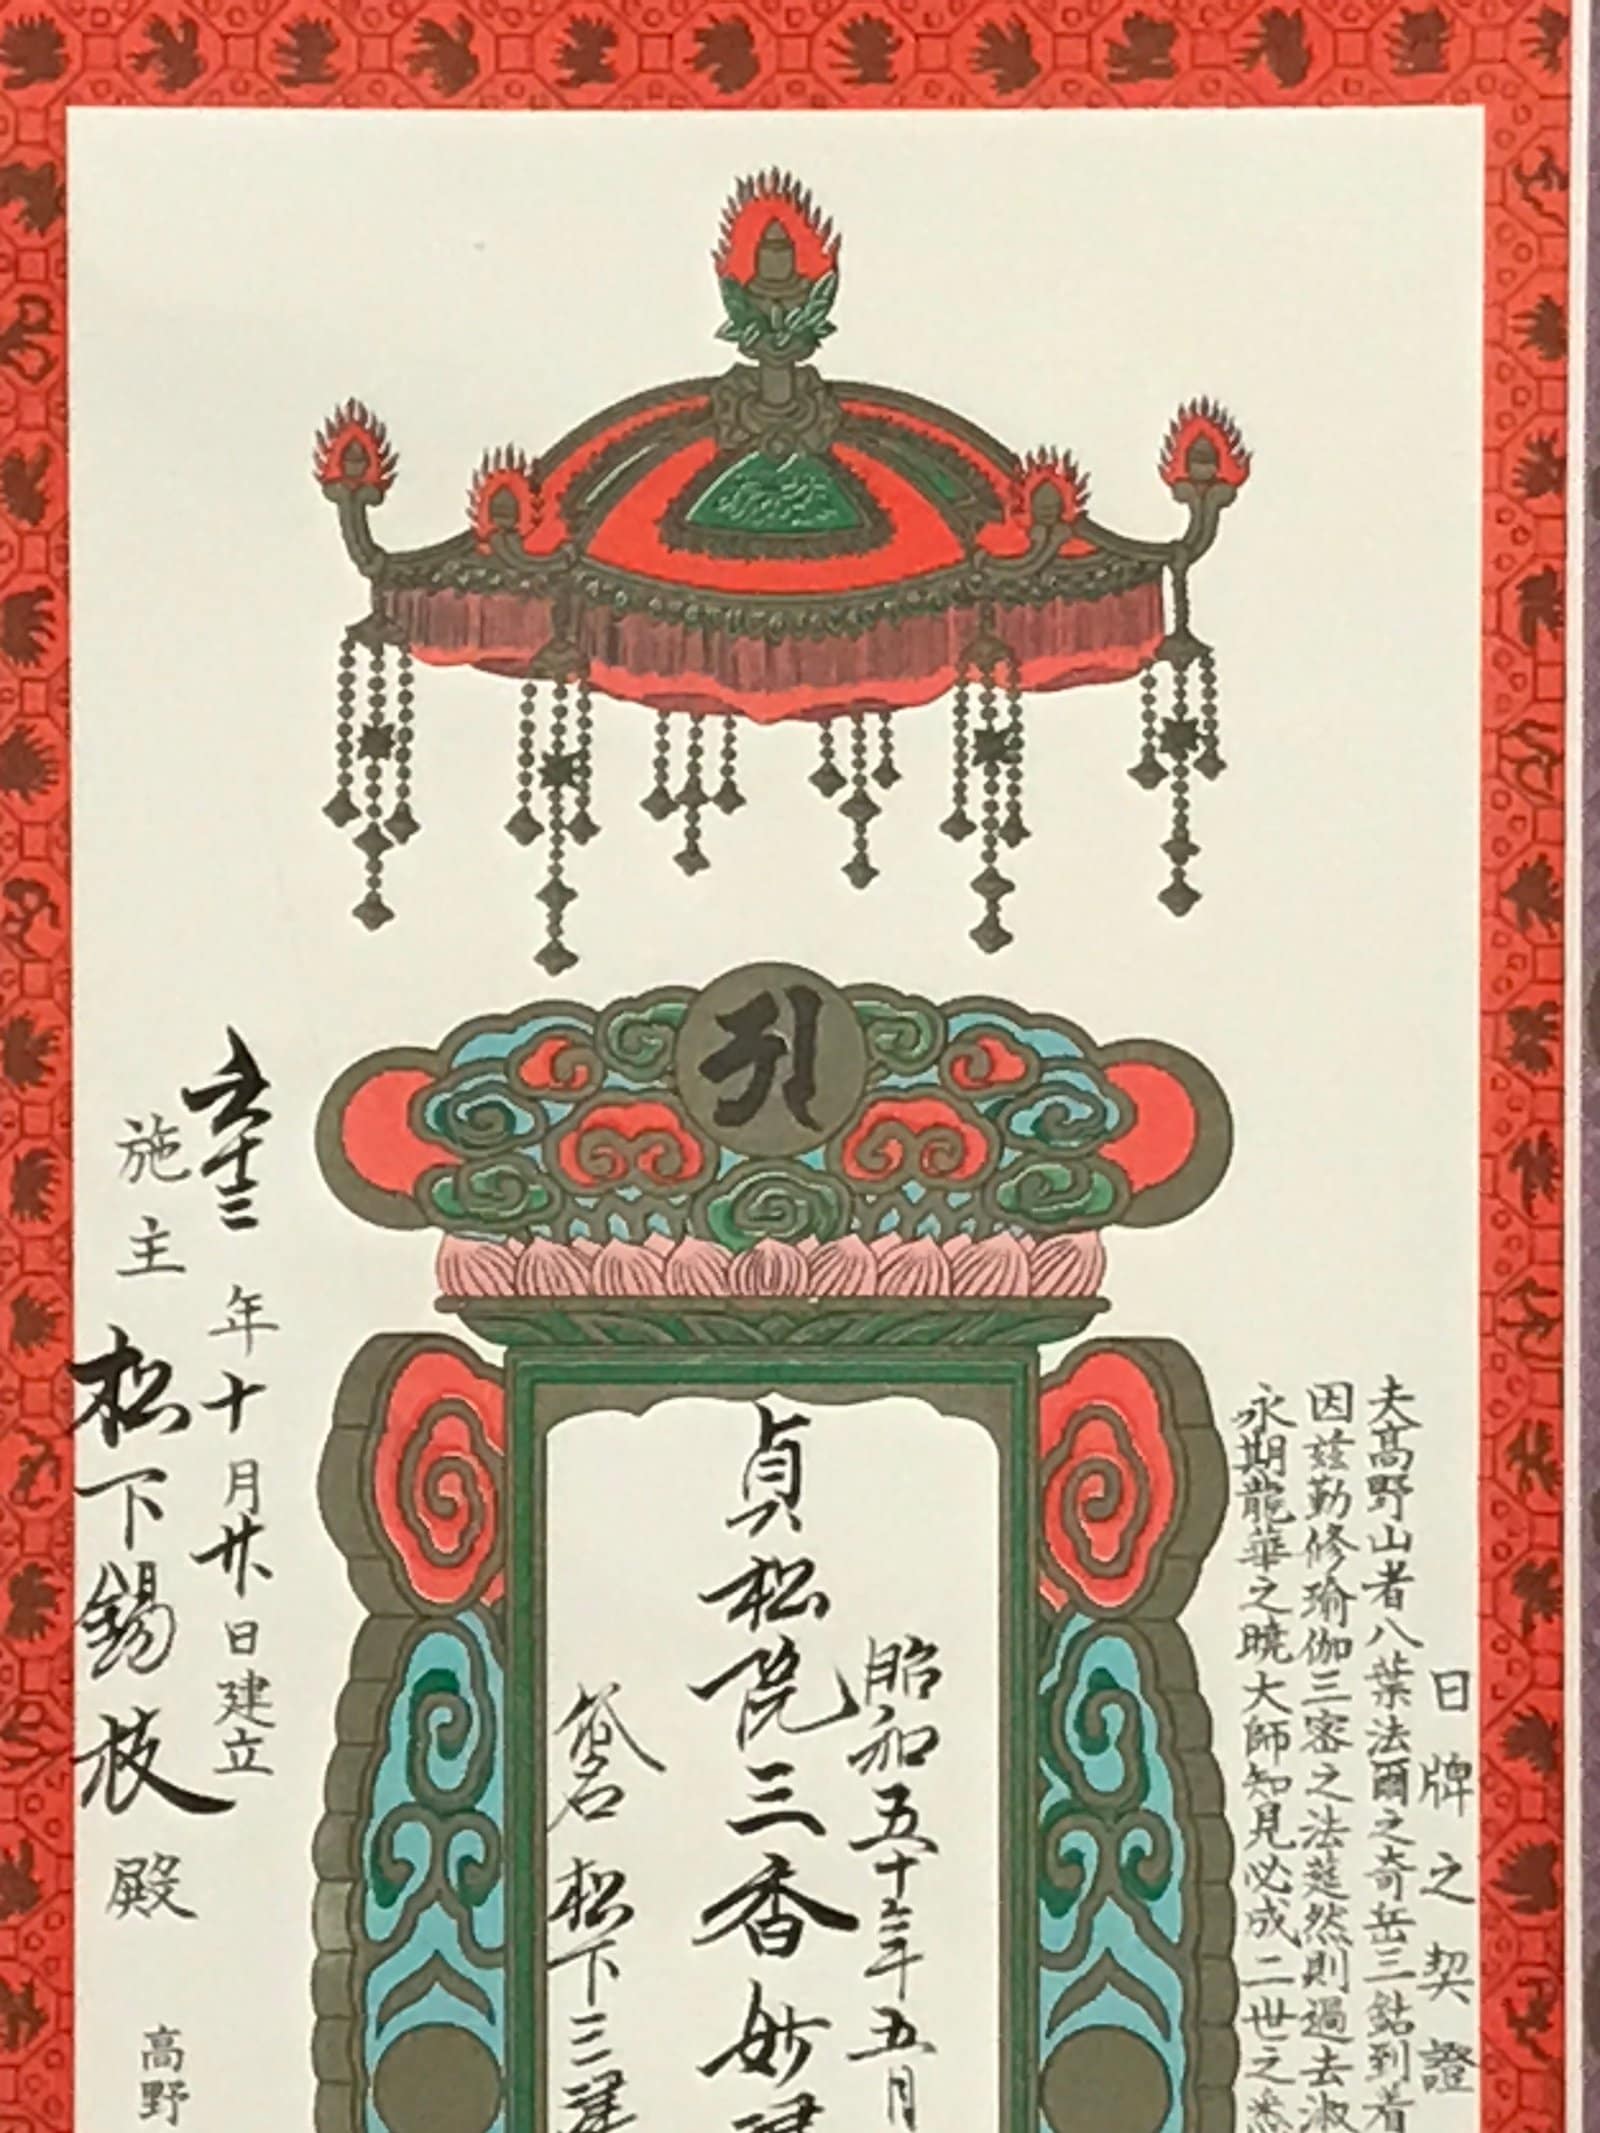 日牌之契證
夫高野山者八葉法爾之奇岳三鈷到着
因茲勤修瑜伽三密之法莚然則過去淑
永期龍華之曉大師知見必成二世之悉
昭和五十三年五月
貞松院三香妙
俗名 松下三
六十三年十月廿日建立
施主 松下錫枝殿
高野